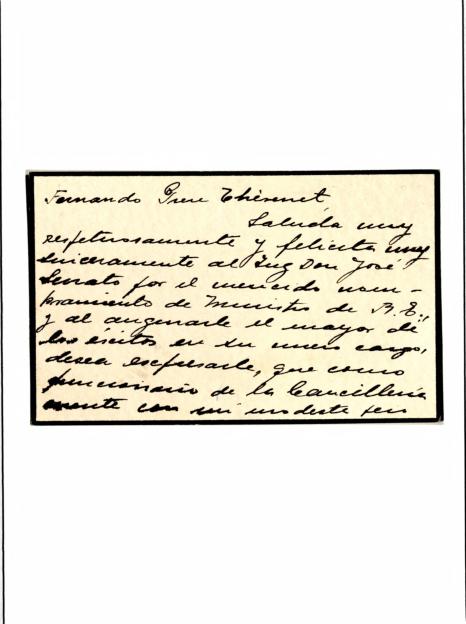 Fernando
Saluda muy
respetuosamente y felicita muy
sinceramente al Ing Don José
Serrato por el merecido nom-
bramiento de Ministro de R. E.,
y al augurarle el mayor de
los éxitos en su nuevo cargo,
desea expresarle, que como
funcionario de la Cancillería
cuente con mi modesto